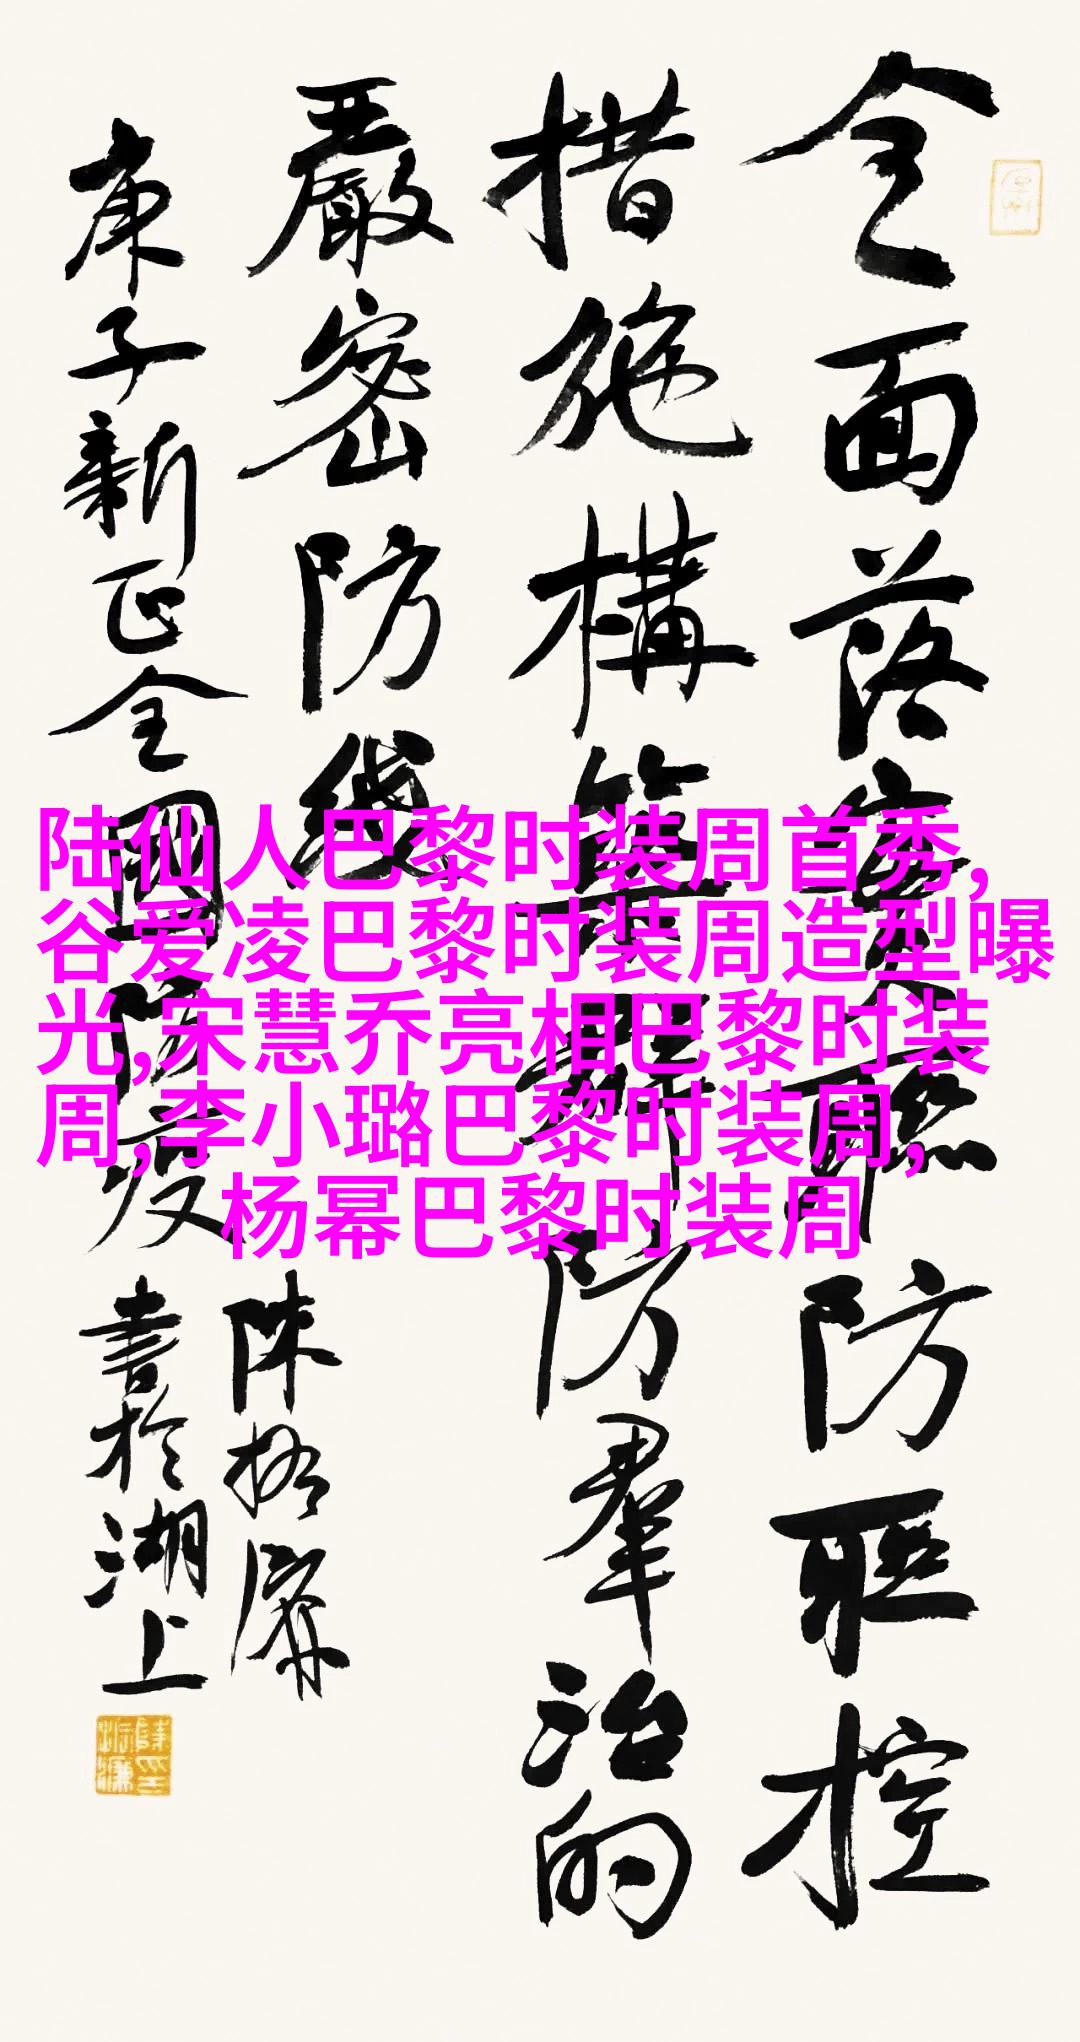 全面落實聯防聯控
措施構築群防羣治的
嚴密防线
庚子新正全國防疫
書於湖上
陸仙人巴黎时装周首秀,
谷爱凌巴黎时装周造型曝
光,宋慧乔亮相巴黎时装
周,李小璐巴黎时装周,
杨幂巴黎时装周